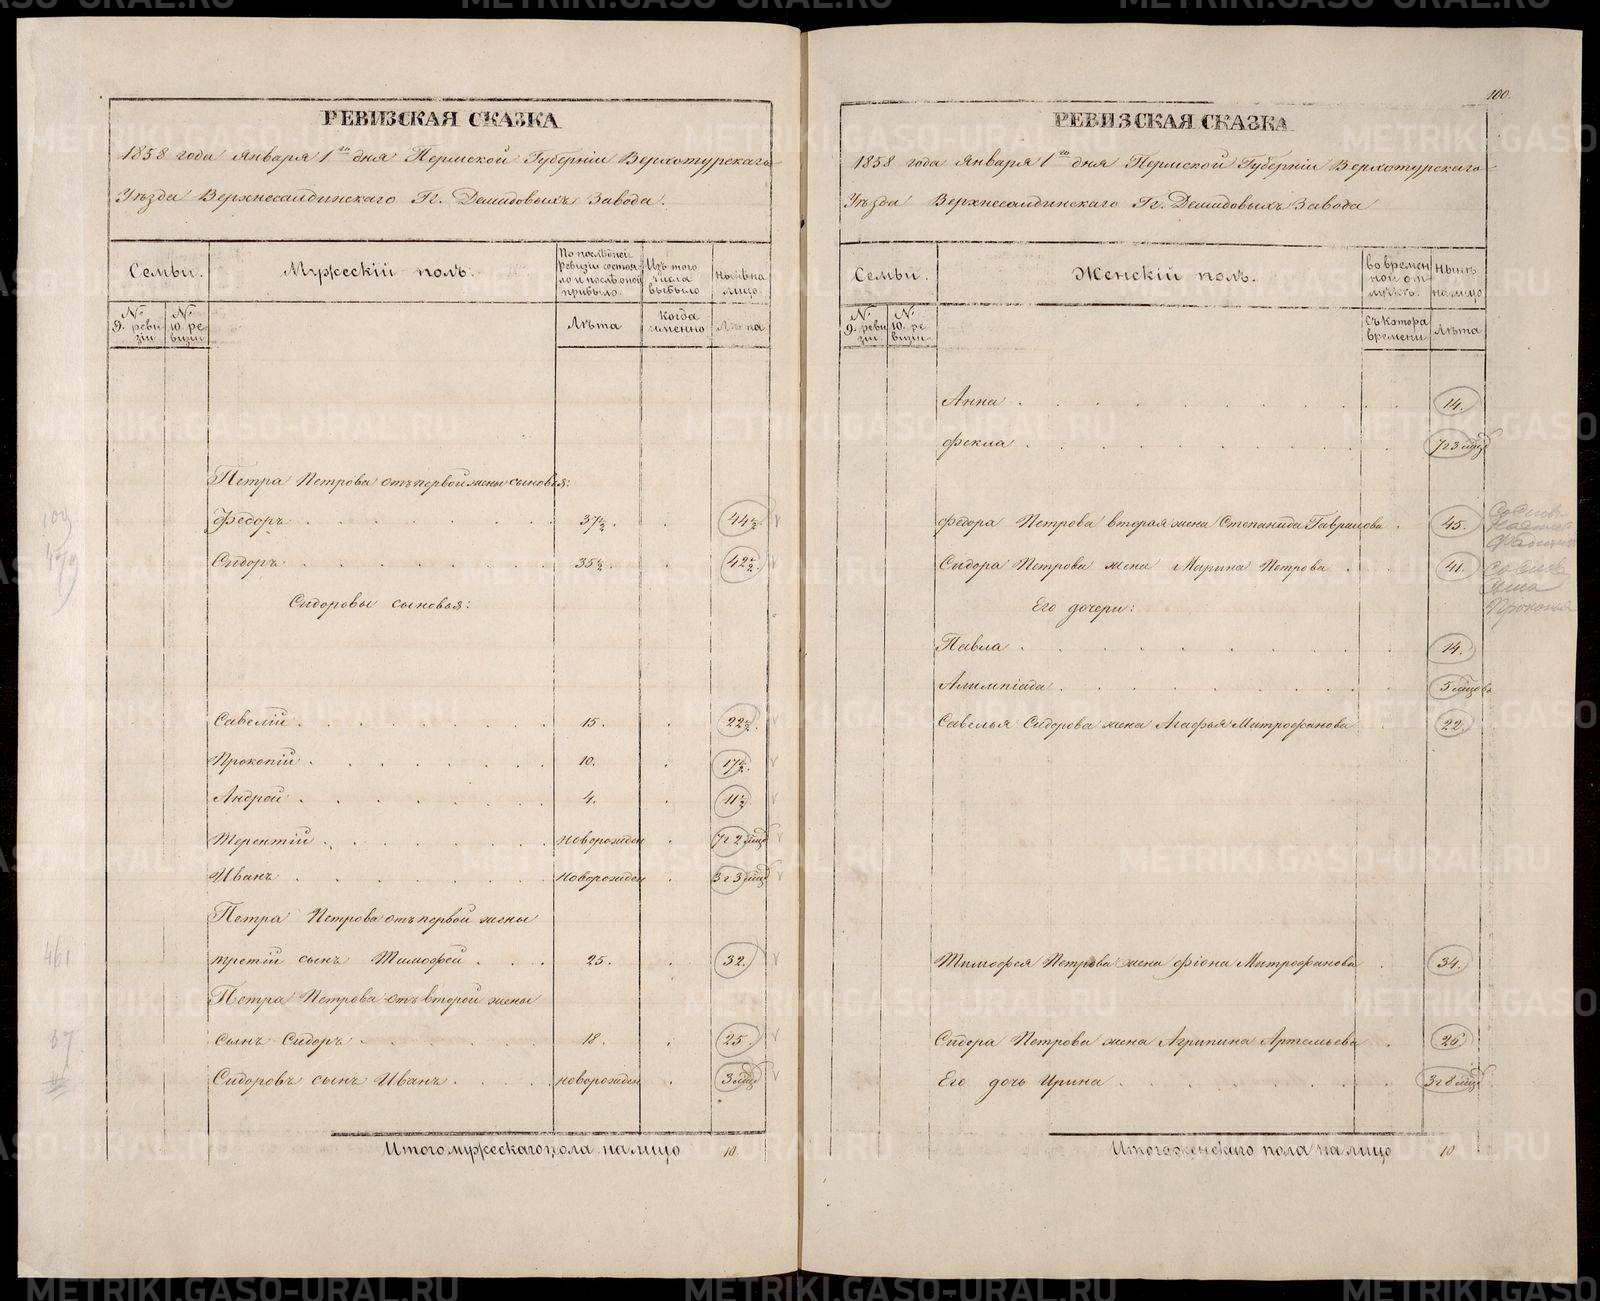 РЕВИЗСКАЯ СКАЗКА
1858 года Января 1го дня Пермской Губерніи Верхотурскаго
Уѣзда Верхнесалдинскаго Гг. Демидовыхъ Завода.
Семьи.
Мужескій полъ.
По послѣдней ревизіи состояло и послѣ оной прибыло.
Изъ того числа выбыло
нынѣ на лицо.
№ 9. ревизіи
№ 10. ревизіи
Лѣта
Когда именно
Лѣта
Петра Петрова отъ первой жены сыновья:
Федоръ 37½. 44½
Сидоръ 35½. 42½.
Сидоровы сыновья:
Савелій 15. 22½.
Прокопій 10. 17½.
Андрей 4. 11½
Терентій новорожден 7г 2 мѣц
Иванъ новорожден 3г 3 мѣц
Петра Петрова отъ первой жены
третій сынъ Тимофей 25. 32.
Петра Петрова отъ второй жены
сынъ Сидоръ 18. 25.
Сидоровъ сынъ Иванъ новорожден 3 мѣц
Итого мужескаго пола на лицо 10.
461
100.
РЕВИЗСКАЯ СКАЗКА
1858 года Января 1го дня Пермской Губерніи Верхотурскаго
Уѣзда Верхнесалдинскаго Гг. Демидовыхъ Завода
Семьи.
Женскій полъ.
во временной отлучкѣ.
Нынѣ на лицо
№ 9. ревизіи
№ 10. ревизіи
Съ котора времени
Лѣта
Анна 14.
Фекла 7г 3 мѣц
Федора Петрова вторая жена Степанида Гаврилова 45.
Сидора Петрова жена Марина Петрова 41.
Его дочери:
Павла 14.
Алимпіада 5 мѣцовъ
Савелья Сидорова жена Агафья Митрофанова 22.
Тимофея Петрова жена Фіона Митрофанова 34.
Сидора Петрова жена Агрипина Артемьева 26
Его дочь Ирина 3г 8 мѣц
Итого женскаго пола на лицо 10
METRIKI.GASO-URAL.RU